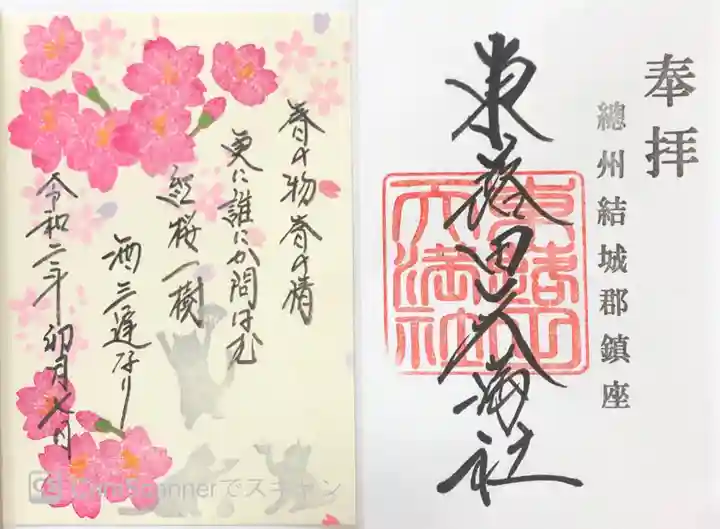 奉拝
總州結城郡鎮座
東蕗田天満社
東蕗田
天満社
春の物春の情
更に誰にか問はむ
紅桜一樹
酒三逢なり
令和三年卯月七日
CamScannerでスキャン